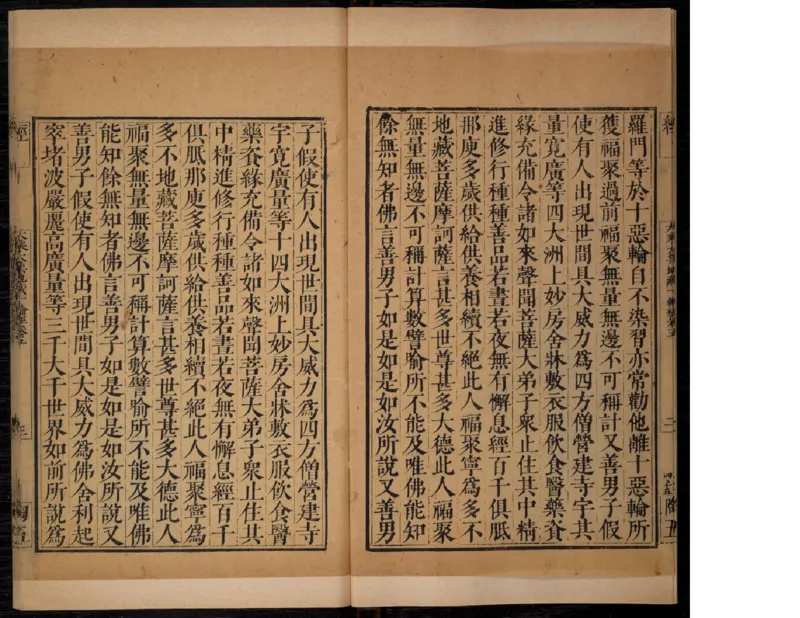 羅門等於十惡輪自不染習亦常勸他離十惡輪所
獲福聚過前福聚無量無邊不可稱計又善男子假
使有人出現世間具大威力為四方僧營建寺宇其
量寬廣等四大洲上妙房舍牀敷衣服飲食醫藥資
緣充備令諸如來聲聞菩薩大弟子眾止住其中精
進修行種種善品若晝若夜無有懈息經百千俱胝
那庾多歲供給供養相續不絕此人福聚寧為多不
地藏菩薩摩訶薩言甚多世尊甚多大德此人福聚
無量無邊不可稱計算數譬喻所不能及唯佛能知
餘無知者佛言善男子如是如是如汝所說又善男
子假使有人出現世間具大威力為四方僧營建寺
宇寬廣量等十四大洲上妙房舍牀敷衣服飲食醫
藥資緣充備令諸如來聲聞菩薩大弟子眾止住其
中精進修行種種善品若晝若夜無有懈息經百千
俱胝那庾多歲供給供養相續不絕此人福聚寧為
多不地藏菩薩摩訶薩言甚多世尊甚多大德此人
福聚無量無邊不可稱計算數譬喻所不能及唯佛
能知餘無知者佛言善男子如是如是如汝所說又
善男子假使有人出現世間具大威力為佛舍利起
窣堵波嚴麗高廣量等三千大千世界如前所說為